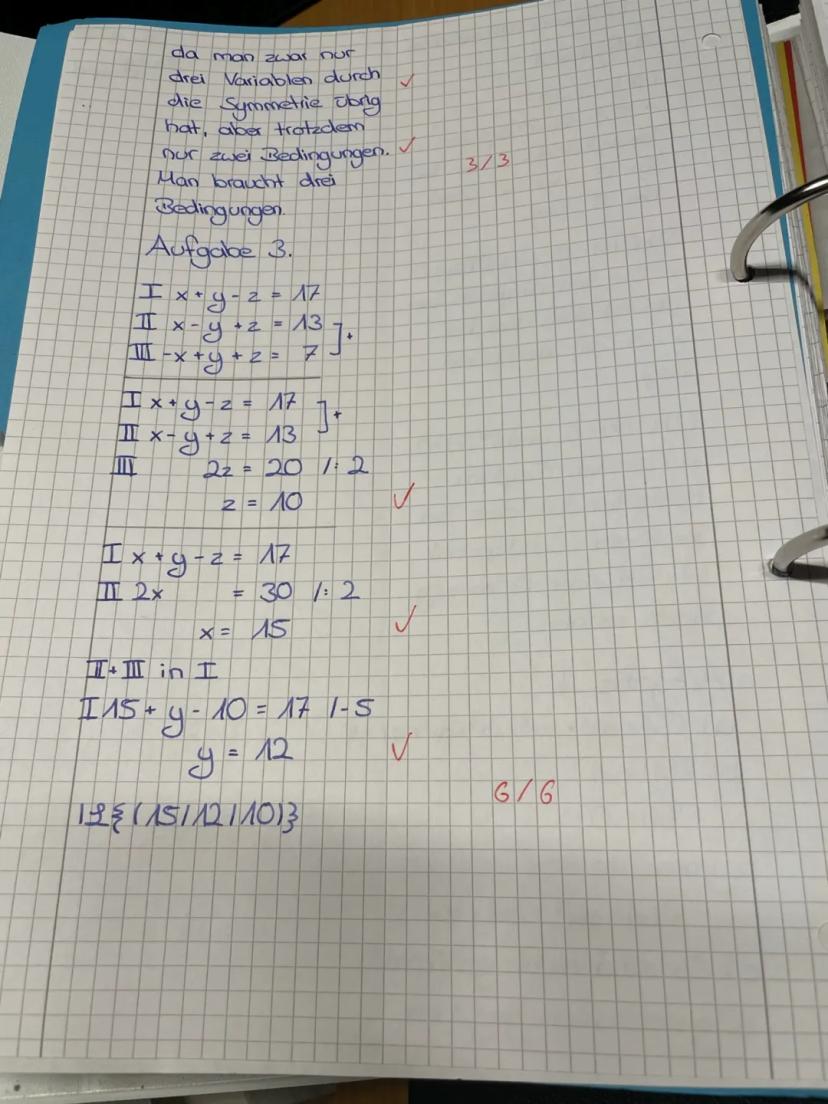 da man zwar nur
drei Variablen durch ✓
die Symmetrie übrig
hat, aber trotzdem
nur zwei Bedingungen. ✓
3/3
Man braucht drei
Bedingungen.
Aufgabe 3.
I x + y - z = 17
II x - y + z = 13
III -x + y + z = 7 ]+
I x + y - z = 17
II x - y + z = 13 ]+
III 2z = 20 /: 2
z = 10 ✓
I x + y - z = 17
II 2x = 30 /: 2
x = 15 ✓
II + III in I
I 15 + y - 10 = 17 /-5
y = 12 ✓
6/6
𝕃{(15/12/10)}